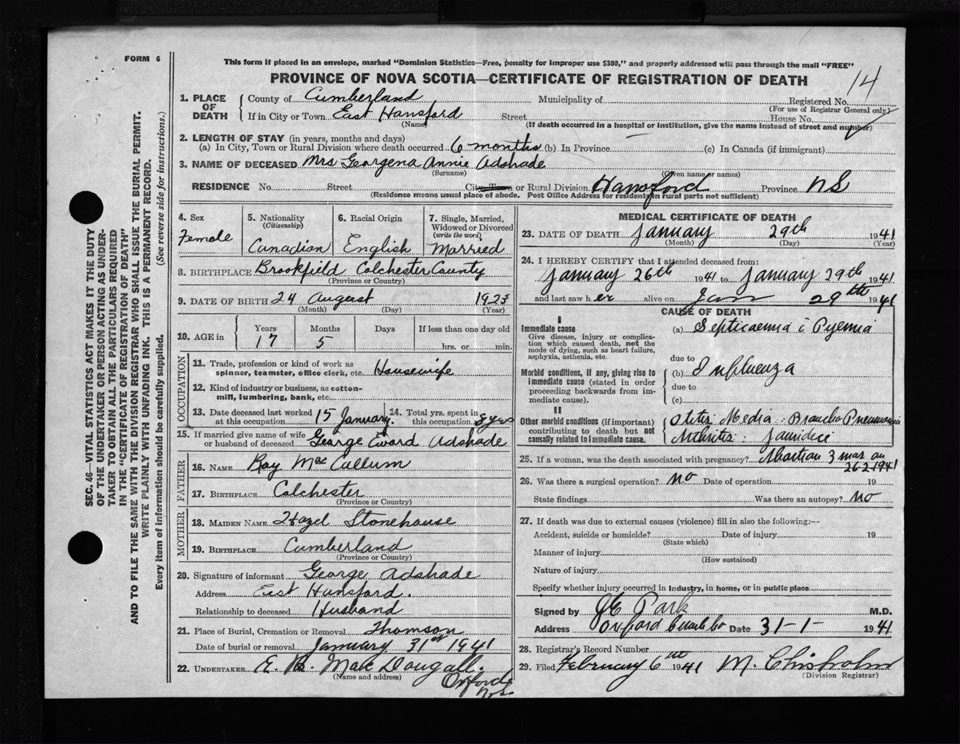 FORM 6
This form if placed in an envelope, marked "Dominion Statistics—Free, penalty for improper use $300," and properly addressed will pass through the mail "FREE"
PROVINCE OF NOVA SCOTIA—CERTIFICATE OF REGISTRATION OF DEATH
14
SEC. 46—VITAL STATISTICS ACT MAKES IT THE DUTY
OF THE UNDERTAKER OR PERSON ACTING AS UNDER-
TAKER TO OBTAIN ALL THE PARTICULARS REQUIRED
IN THE "CERTIFICATE OF REGISTRATION OF DEATH"
AND TO FILE THE SAME WITH THE DIVISION REGISTRAR WHO SHALL ISSUE THE BURIAL PERMIT.
WRITE PLAINLY WITH UNFADING INK. THIS IS A PERMANENT RECORD.
Every item of information should be carefully supplied. (See reverse side for instructions.)
1. PLACE OF DEATH
County of Cumberland Municipality of Registered No.
(For use of Registrar General only)
If in City or Town East Hansford Street House No.
(Name) (If death occurred in a hospital or institution, give the name instead of street and number)
2. LENGTH OF STAY (in years, months and days)
(a) In City, Town or Rural Division where death occurred 6 months (b) In Province (c) In Canada (if immigrant)
3. NAME OF DECEASED Mrs Georgena Annie Adshade
(Surname) (Given name or names)
RESIDENCE No. Street City Town or Rural Division Hansford Province NS
(Residence means usual place of abode. Post Office Address for residents in rural parts not sufficient)
4. Sex Female
5. Nationality (Citizenship) Canadian
6. Racial Origin English
7. Single, Married, Widowed or Divorced (write the word) Married
8. BIRTHPLACE Brookfield Colchester County
(Province or Country)
9. DATE OF BIRTH 24 August 1923
(Month) (Day) (Year)
10. AGE in Years 17 Months 5 Days If less than one day old hrs. or min.
OCCUPATION
11. Trade, profession or kind of work as spinner, teamster, office clerk, etc. Housewife
12. Kind of industry or business, as cotton-mill, lumbering, bank, etc.
13. Date deceased last worked at this occupation 15 January.
14. Total yrs. spent in this occupation
15. If married give name of wife or husband of deceased George Eward Adshade
FATHER
16. NAME Roy MacCullum
17. BIRTHPLACE Colchester
(Province or Country)
MOTHER
18. MAIDEN NAME Hazel Stonehouse
19. BIRTHPLACE Cumberland
(Province or Country)
20. Signature of informant George Adshade
Address East Hansford.
Relationship to deceased Husband
21. Place of Burial, Cremation or Removal Thomson
Date of burial or removal January 31st 1941
22. UNDERTAKER E. B. MacDougall.
(Name and address) Oxford
N.S.
MEDICAL CERTIFICATE OF DEATH
23. DATE OF DEATH January 29th 1941
(Month) (Day) (Year)
24. I HEREBY CERTIFY that I attended deceased from:
January 26th 1941 to January 29th 1941
and last saw her alive on Jan 29th 1941
CAUSE OF DEATH
I
Immediate cause
Give disease, injury or complication which caused death, not the mode of dying, such as heart failure, asphyxia, asthenia, etc.
(a) Septicaemia c Pyemia
due to
Morbid conditions, if any, giving rise to immediate cause (stated in order proceeding backwards from immediate).
(b) Influenza
due to
(c)
II
Other morbid conditions (if important) contributing to death but not causally related to immediate cause.
Otitis Media - Broncho Pneumonia
Arthritis - Jaundice
25. If a woman, was the death associated with pregnancy? Abortion 3 mos on
26. Was there a surgical operation? no Date of operation 19
State findings Was there an autopsy? no
27. If death was due to external causes (violence) fill in also the following:—
Accident, suicide or homicide? Date of injury 19
(State which)
Manner of injury
(How sustained)
Nature of injury
Specify whether injury occurred in industry, in home, or in public place
Signed by JE Park M.D.
Address Oxford Date 31-1- 1941
28. Registrar's Record Number
29. Filed February 6th 1941 M. Chisholm
(Division Registrar)